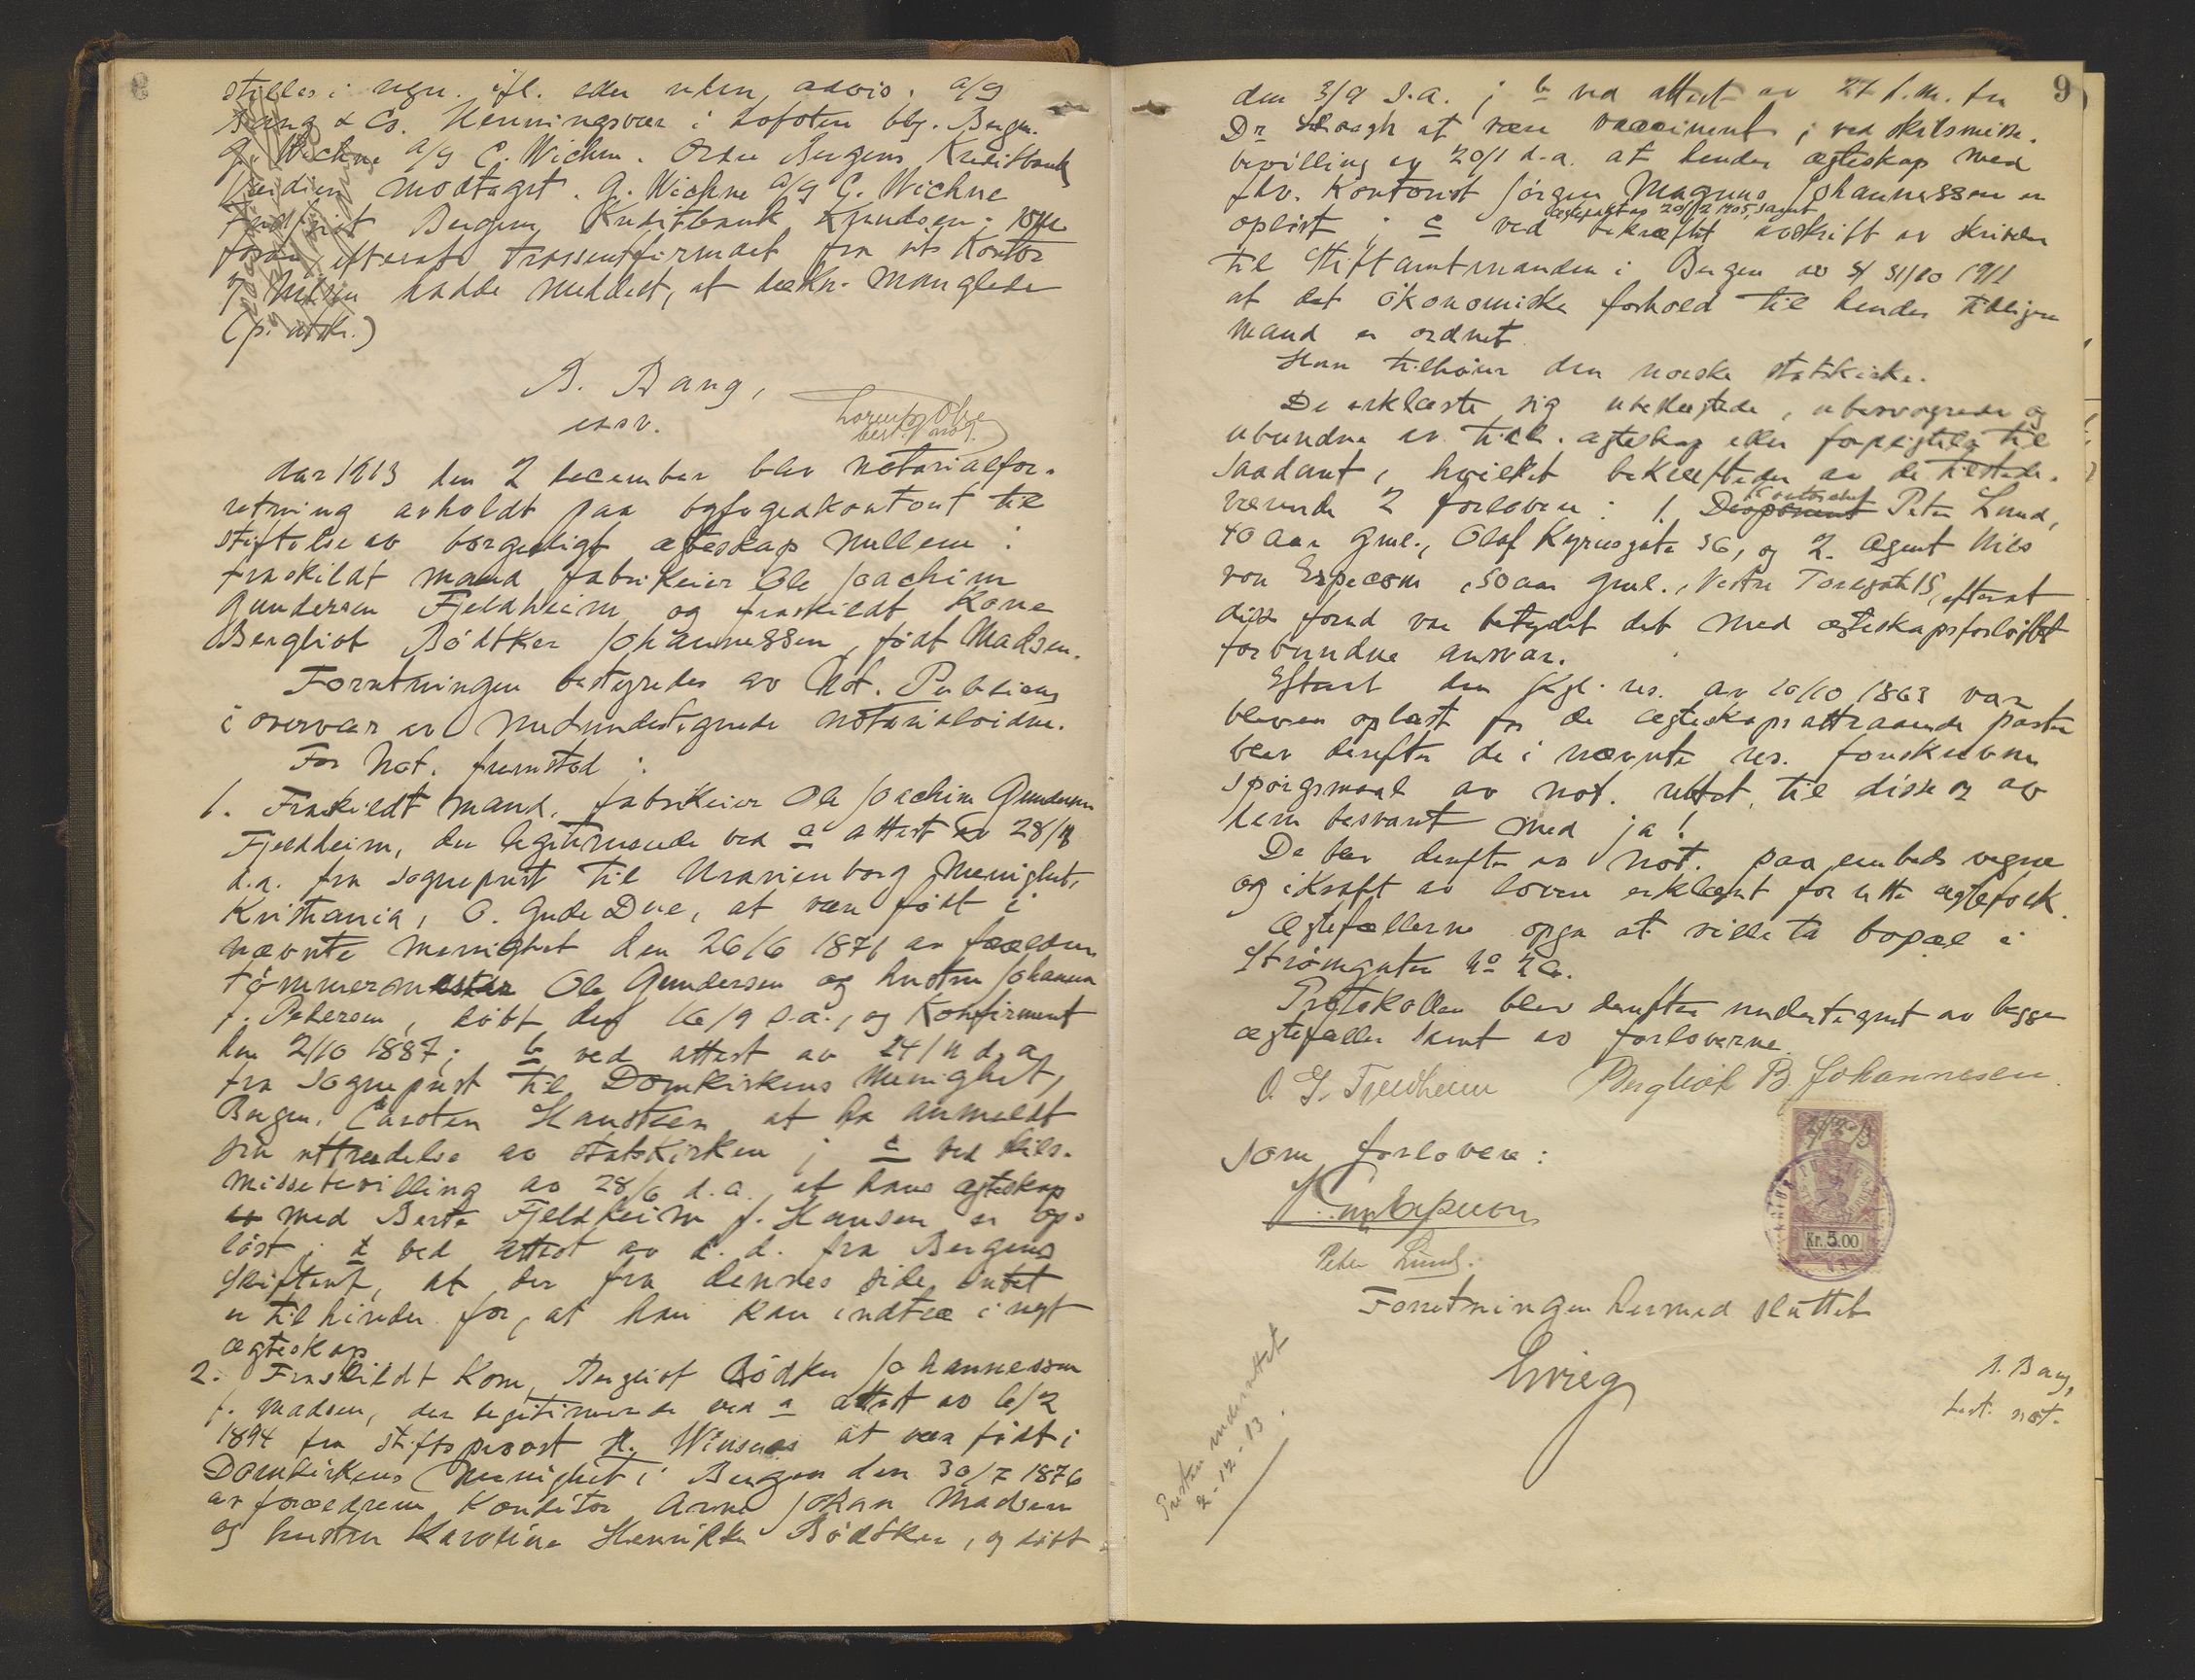 stilles i regn. ifl. eller uten advis. a/g
Bang & Co. Henningsvær i Lofoten bbg. Bergen.
G. Wichne a/g C. Wichne. Ordre Bergens Kreditbank
Værdien modtaget. G. Wichne a/g C. Wichne
Bergens Kreditbank Knudsen:
efterat trassentfirmaet fra sit Kontor
hadde meddelt, at dækn. manglede
(p. utskr.)
B. Bang,
essv.
Lorentz Obre
best. not.
Aar 1913 den 2 december blev notarialfor-
retning avholdt paa byfogedkontoret til
stiftelse av borgerligt egteskap mellem:
fraskildt mand fabrikeier Ole Joachim
Gundersen Fjeldheim og fraskildt Kone
Bergliot Bödtker Johannessen, født Madsen.
Forretningen bestyredes av Not. Publicus
i overvær av medundertegnede notarialvidne.
For Not. fremstod:
1. Fraskildt mand, fabrikeier Ole Joachim Gundersen
Fjeldheim, der legitimerede ved a attest av 28/11
d.a. fra sogneprest til Uranienborg Menighet,
Kristiania, O. Gude Due, at være født i
nævnte menighet den 26/6 1871 av forældre
tömmermester Ole Gundersen og hustru Johanna
f. Petersen, döbt den 16/9 s.a., og Konfirmert
den 2/10 1887; b ved attest av 24/11 d.a.
fra sogneprest til Domkirkens Menighet,
Bergen, Carsten Hansteen at ha anmeldt
sin uttrædelse av statskirken; c ved skils-
missebevilling av 28/6 d.a. at hans egteskap
er med Berta Fjeldheim f. Hansen er op-
löst; d ved attest av d.d. fra Bergens
Skifteret, at der fra dennes side intet
er til hinder for, at han kan indtræ i nyt
egteskap
2. Fraskildt Kone Bergliot Bödtker Johannessen
f. Madsen, der legitimerede ved a attest av 6/2
1894 fra stiftsprovst H. Winsnes at være født i
Domkirkens Menighet i Bergen den 30/7 1876
av forældrene Konditor Arne Johan Madsen
og hustru Karoline Henrikke Bödtker, og döbt
9
den 3/9 s.a.; b ved attest av 27 f.m. fra
Dr at være vaccinert; ved skilsmisse-
bevilling av 20/1 d.a. at hendes egteskap med
fhv. Kontorist Jörgen Magnus Johannessen er
egtepakt av 20/12 1905, samt
oplöst; c ved bekræftet avskrift av skrivelse
til Stiftamtmanden i Bergen av 31/10 1911
at det ökonomiske forhold til hendes tidligere
mand er ordnet
Hun tilhörer den norske statskirke.
De erklærte sig ubeslegtede, ubesvogrede og
ubundne av tidl. egteskap eller forpligtelse til
saadant, hvilket bekræftedes av de tilstede-
Kontorchef
værende 2 forlovere: 1. Disponent Peter Lund,
40 aar gml., Olaf Kyrresgate 36, og 2. Agent Nils
von Erpecom, 50 aar gml., Vestre Torvgate 15, efterat
disse forud var betydet det med egteskapsforløftet
forbundne ansvar.
Efterat den Kgl. res. av 16/10 1863 var
bleven oplæst for de egteskapsattraaende parter
blev derefter de i nævnte res. foreskrevne
spörgsmaal av not. rettet til disse og av
dem besvart med ja!
De blev derefter av Not. paa embeds vegne
og i kraft av loven erklært for rette egtefolk.
Egtefællerne opga at ville ta bopæl i
Strömgaten No
Protokollen blev derefter undertegnet av begge
egtefæller samt av forloverne.
O. G. Fjeldheim Bergliot B. Johannesen.
Som forlovere:
Peter Lund.
2/12 13
Kr. 5.00
Forretningen hermed sluttet
Grieg
B. Bang,
best. not.
Presten underrettet
2-12-13.